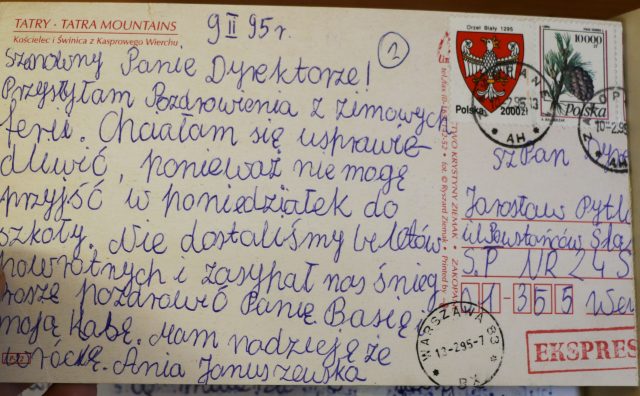 TATRY - TATRA MOUNTAINS
Kościelec i Świnica z Kasprowego Wierchu
9 II 95 r.
1
Szanowny Panie Dyrektorze!
Przysyłam Pozdrowienia z zimowych
ferii. Chciałam się usprawie-
dliwić, ponieważ nie mogę
przyjść w poniedziałek do
szkoły. Nie dostaliśmy biletów
powrotnych i zasypał nas śnieg
Proszę pozdrowić Panię Basię i
moją klasę. Mam nadzieję że
wrócę. Ania Januszewska
Orzeł Biały 1295
Polska 2000 zł
10000 zł
Polska
AH
10-2.95
Sz Pan
Jarosław Pytl
ul. Powstańców Ślą
S.P. NR 24 S
01-355
WARSZAWA 83
10-295-7
EKSPRES
TWO KRYSTYNY ZIEMAK
ZAKOPA
fot. © Ryszard Ziemak
Printed by